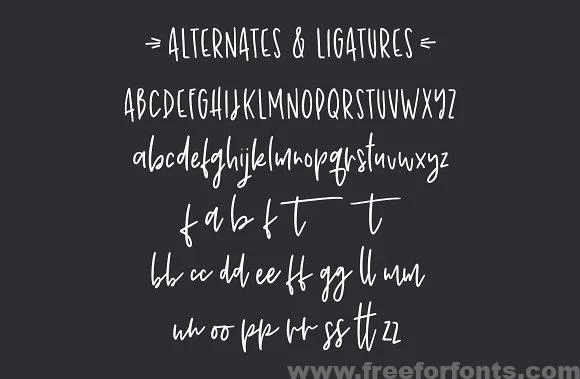 ALTERNATES & LIGATURES
ABCDEFGHIJKLMNOPQRSTUVWXYZ
abcdefghijklmnopqrstuvwxyz
f a b f t t
bb cc dd ee ff gg ll mm
nn oo pp rr ss tt zz
www.freeforfonts.com